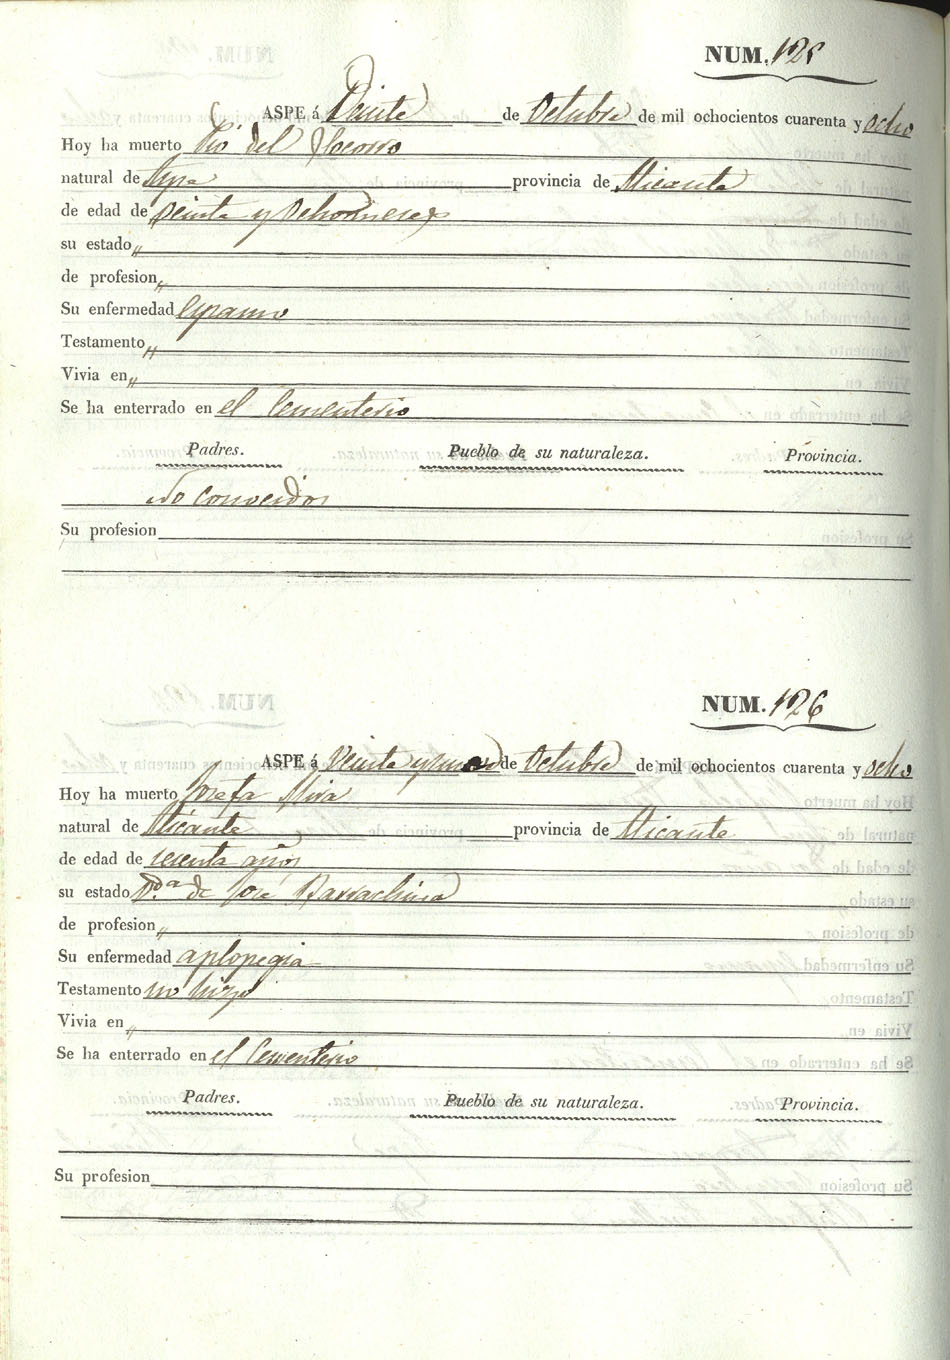 NUM. 125
ASPE á Veinte de Octubre de mil ochocientos cuarenta y ocho
Hoy ha muerto Pio del Socorro
natural de Aspe provincia de Alicante
de edad de veinte y ocho meses
su estado „
de profesion „
Su enfermedad espasmo
Testamento „
Vivia en „
Se ha enterrado en el Cementerio
Padres. Pueblo de su naturaleza. Provincia.
No conocidos
Su profesion
NUM. 126
ASPE á Veinte y uno de Octubre de mil ochocientos cuarenta y ocho
Hoy ha muerto Josefa Mira
natural de Alicante provincia de Alicante
de edad de sesenta años
su estado V.da de José Barrachina
de profesion „
Su enfermedad aplopegia
Testamento no hizo
Vivia en „
Se ha enterrado en el Cementerio
Padres. Pueblo de su naturaleza. Provincia.
Su profesion